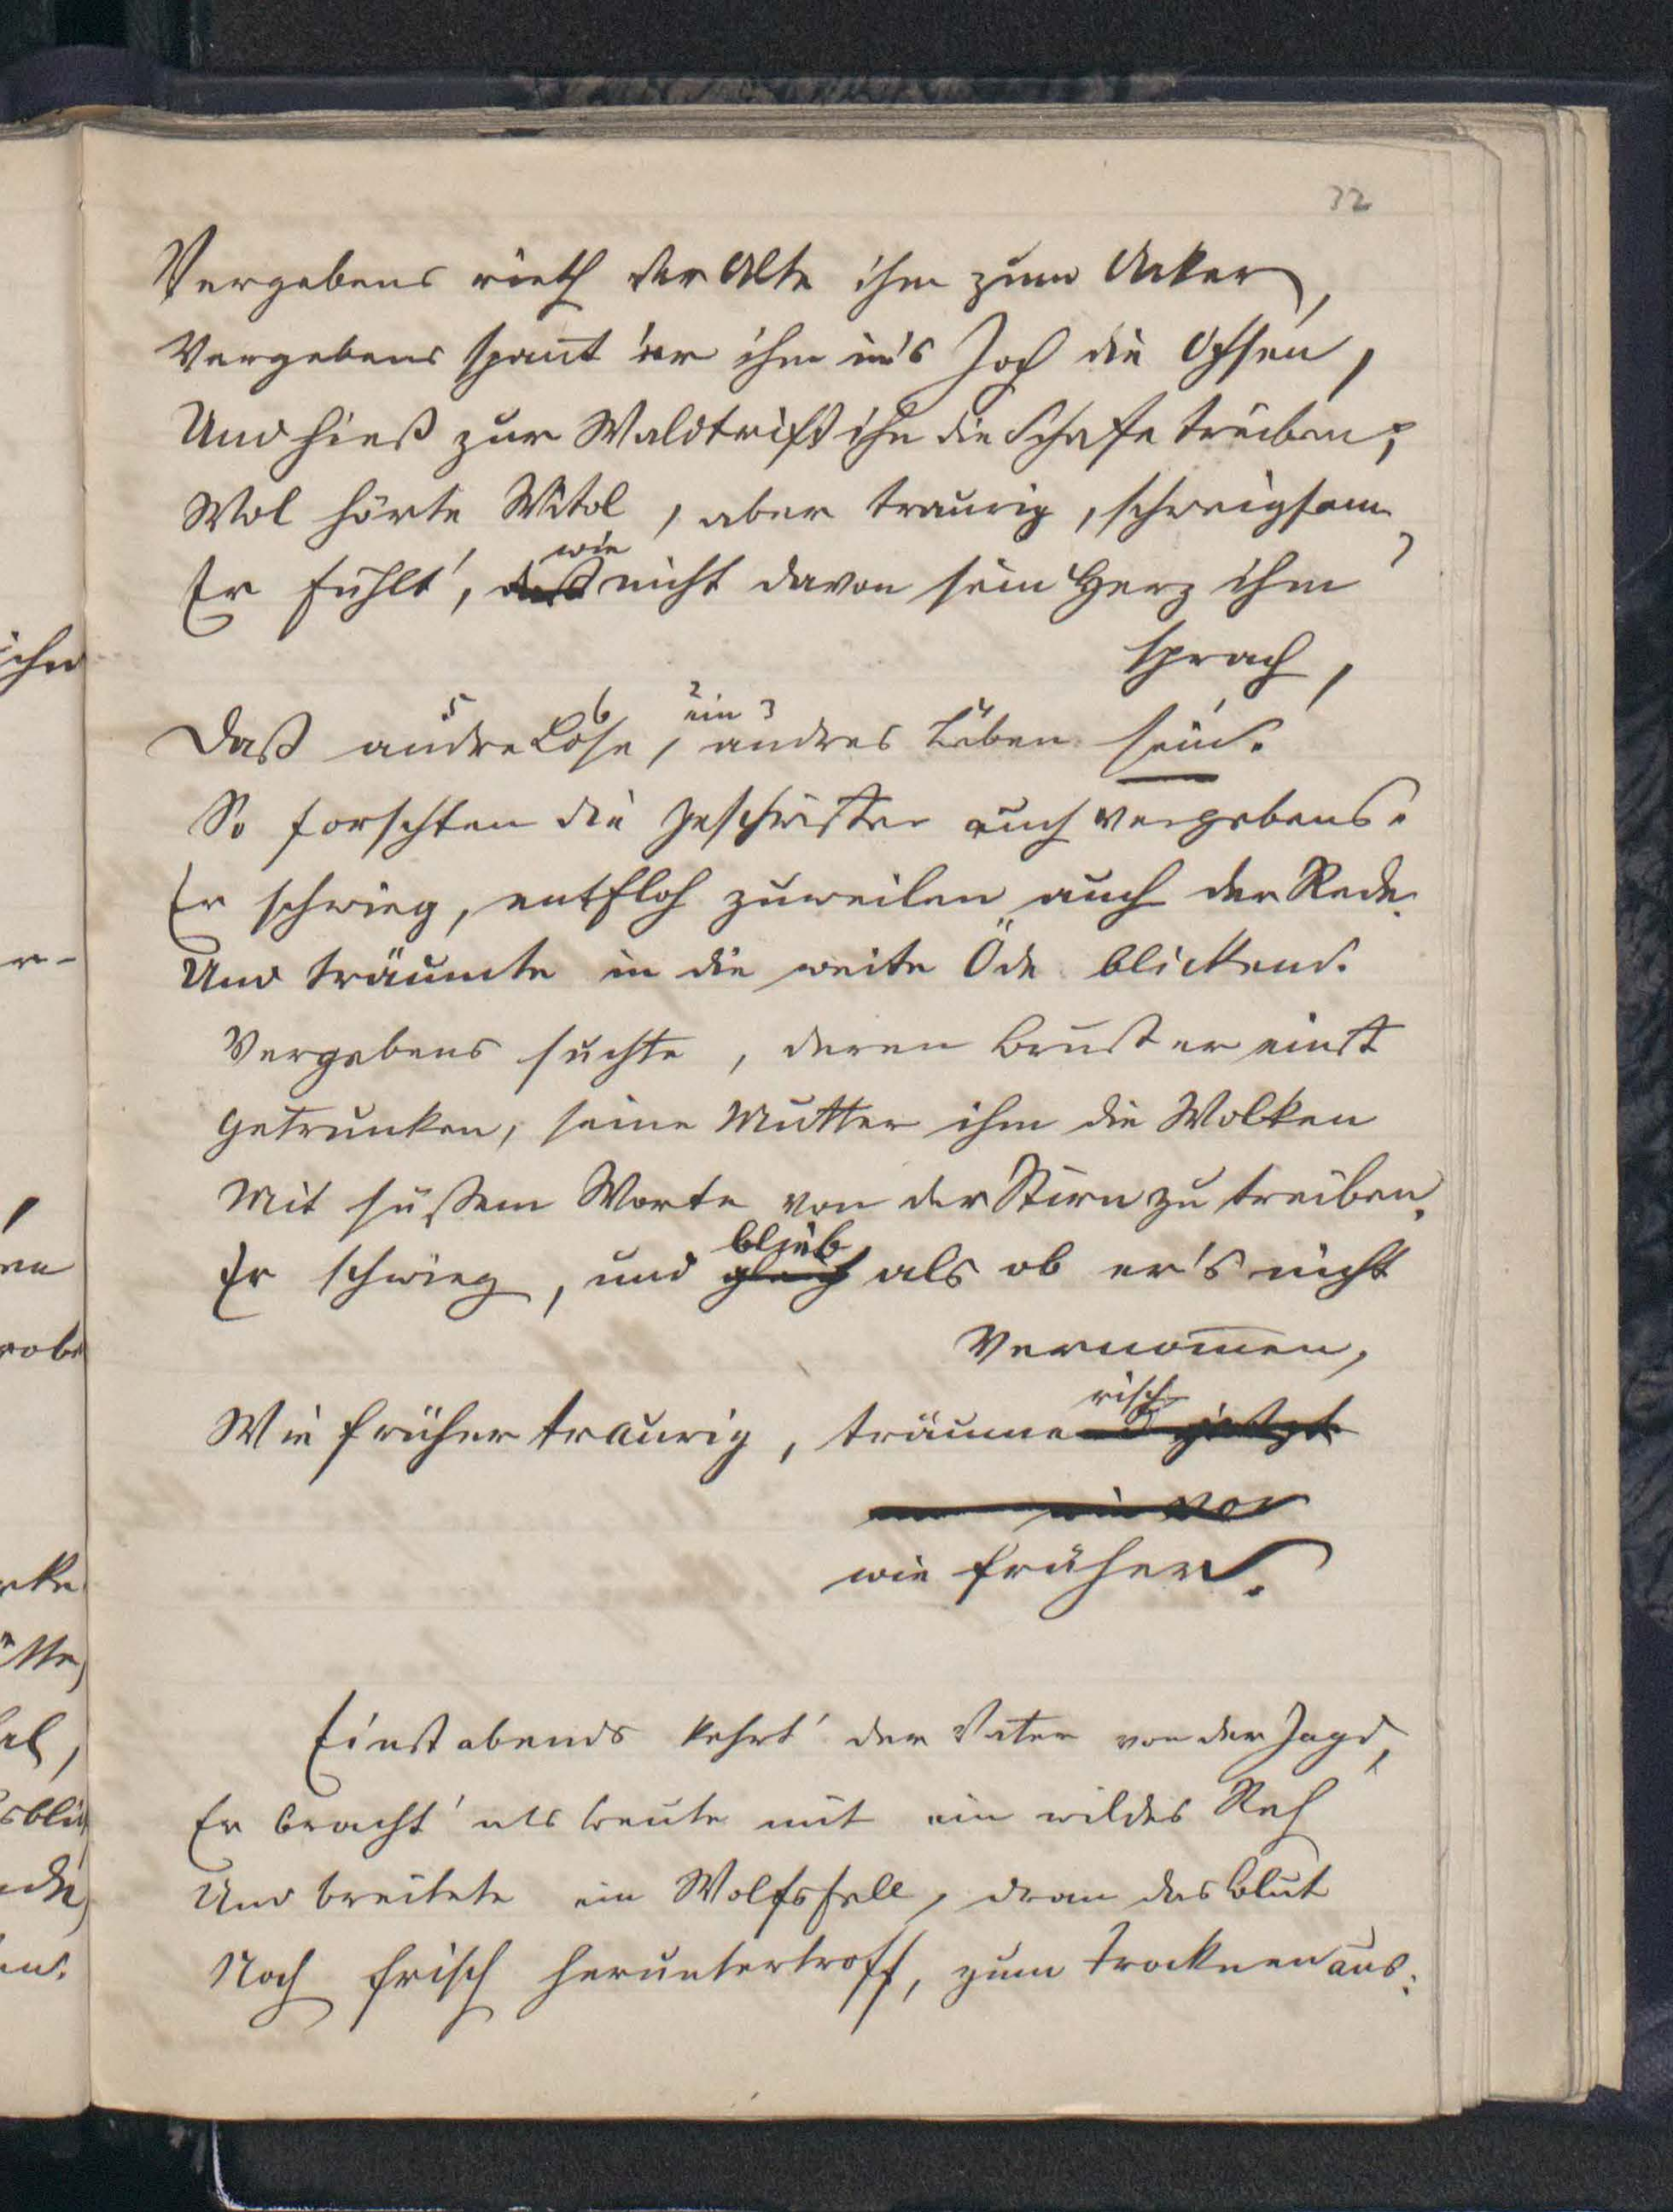 32
Vergebens rieth der Alte ihm zum Acker,
Vergebens spañt' er ihm in's Joch die Ochsen,
Und hieß zur Waldtrift ihn die Schafe treiben;
Wol hörte Witol, aber traurig, schweigsam,
wie
Er fühlt', daß nicht davon sein Herz ihm
sprach,
5 6 2 ein 3 4
Daß andre Lose, andres Leben sein.
So forschten die Geschwister auch vergebens.
Er schwieg, entfloh zuweilen auch der Rede
Und träumte in die weite Öde blickend.
Vergebens suchte, deren Brust er einst
Getrunken, seine Mutter ihm die Wolken
Mit süßem Worte von der Stirn zu treiben,
blieb
Er schwieg, und gleich als ob er's nicht
Vernom̅en,
risch
Wie früher traurig, träumend jetzt
wie vor
wie früher.
Einst abends kehrt' der Vater von der Jagd,
Er bracht' als Beute mit ein wildes Reh
Und breitete ein Wolfsfell, dran das Blut
Noch frisch heruntertroff, zum Trocknen aus:
ihn
r-
,
en
cke